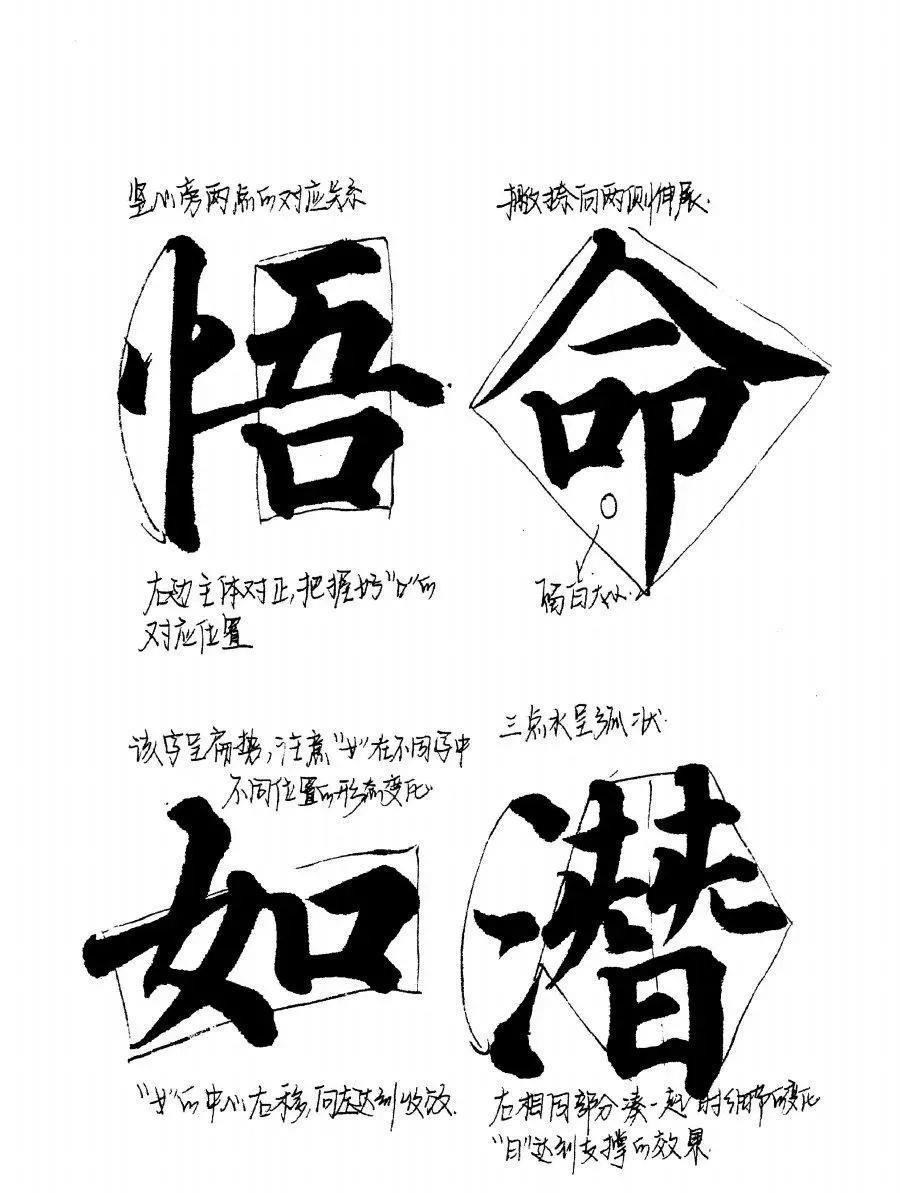 竖心旁两点的对应关系
悟
右边主体对正,把握好"口"的
对应位置
撇捺向两侧伸展.
命
留白大小.
该字呈扁势,注意"女"在不同字中
不同位置的形态变化
如
"女"的中心右移,向左达到收放.
三点水呈弧状.
潜
右相同部分凑一起时细节的变化
"日"达到支撑的效果.